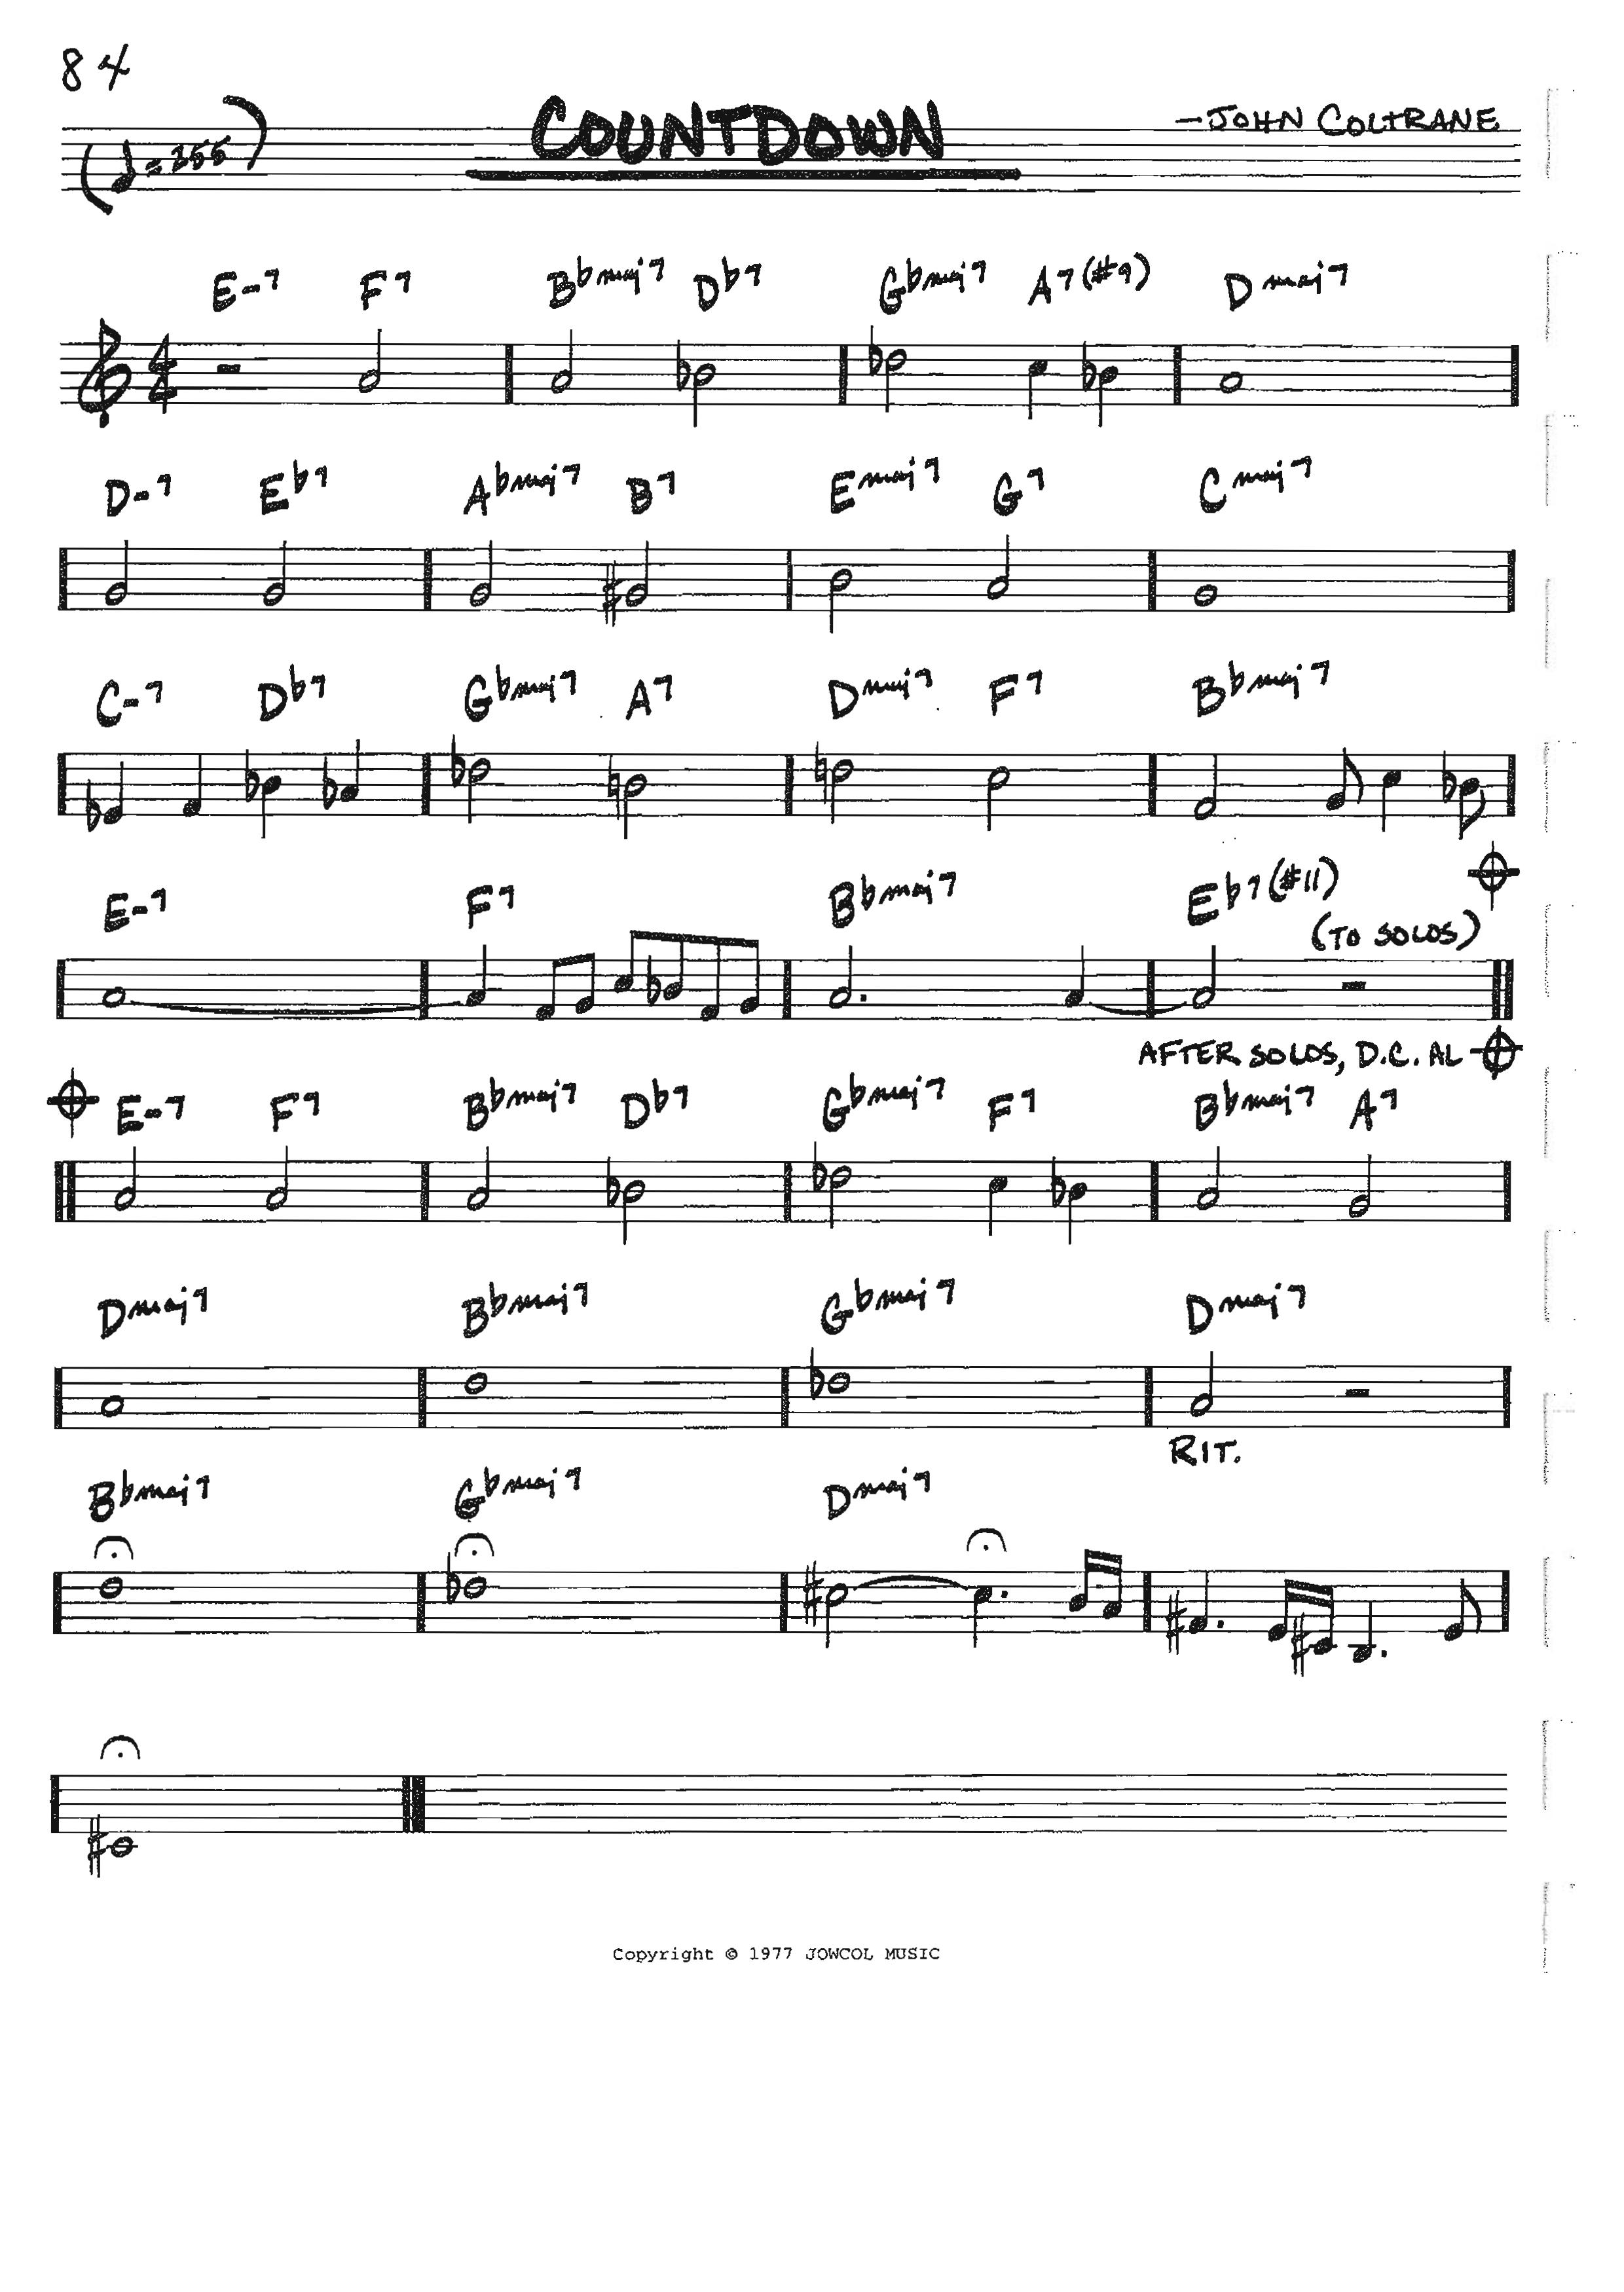 84
(♩=255)
COUNTDOWN
–JOHN COLTRANE
E-7 F7 Bbmaj7 Db7 Gbmaj7 A7(#9) Dmaj7
D-7 Eb7 Abmaj7 B7 Emaj7 G7 Cmaj7
C-7 Db7 Gbmaj7 A7 Dmaj7 F7 Bbmaj7
E-7 F7 Bbmaj7 Eb7(#11)
(TO SOLOS)
AFTER SOLOS, D.C. AL
E-7 F7 Bbmaj7 Db7 Gbmaj7 F7 Bbmaj7 A7
Dmaj7 Bbmaj7 Gbmaj7 Dmaj7
RIT.
Bbmaj7 Gbmaj7 Dmaj7
Copyright © 1977 JOWCOL MUSIC